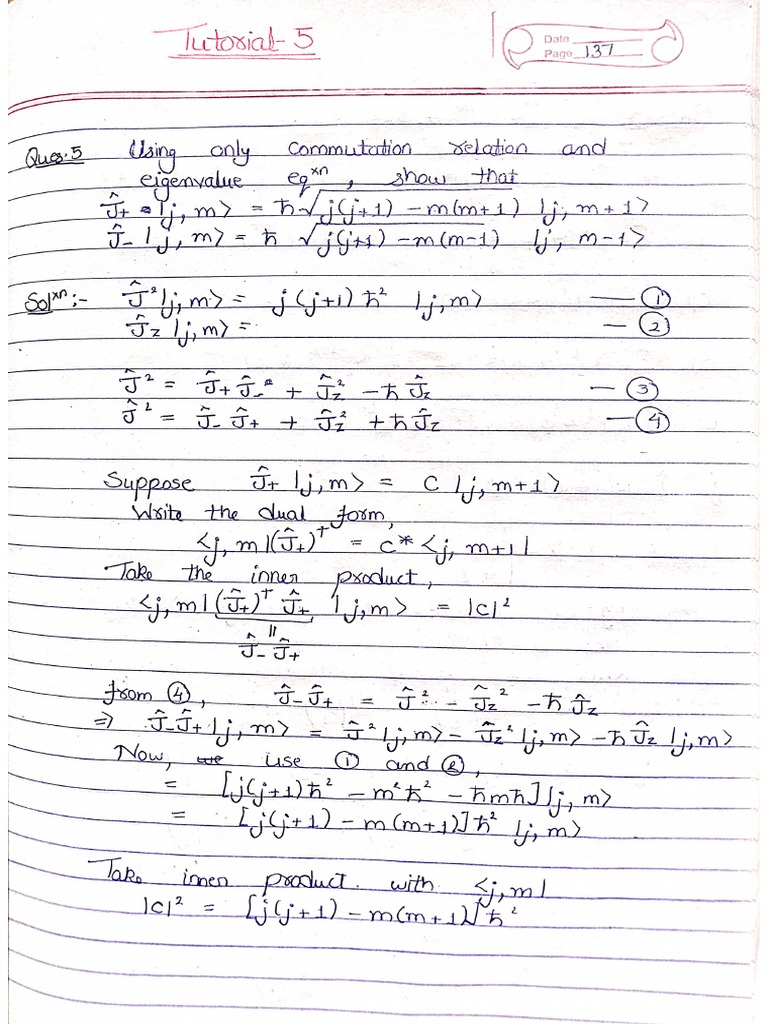 Tutorial-5
Date
Page 137
Ques.5 Using only commutation relation and
eigenvalue eqˣⁿ, show that
Ĵ₊ |j, m⟩ = ħ√(j(j+1) - m(m+1)) |j, m+1⟩
Ĵ₋ |j, m⟩ = ħ √(j(j+1) - m(m-1)) |j, m-1⟩
Solˣⁿ:- Ĵ² |j, m⟩ = j(j+1) ħ² |j, m⟩ — ①
Ĵz |j, m⟩ = — ②
Ĵ² = Ĵ₊ Ĵ₋ + Ĵz² - ħ Ĵz — ③
Ĵ² = Ĵ₋ Ĵ₊ + Ĵz² + ħ Ĵz — ④
Suppose Ĵ₊ |j, m⟩ = C |j, m+1⟩
Write the dual form,
⟨j, m|(Ĵ₊)† = c* ⟨j, m+1|
Take the inner product,
⟨j, m| (Ĵ₊)† Ĵ₊ |j, m⟩ = |c|²
||
Ĵ₋ Ĵ₊
from ④, Ĵ₋ Ĵ₊ = Ĵ² - Ĵz² - ħ Ĵz
⇒ Ĵ₋ Ĵ₊ |j, m⟩ = Ĵ² |j, m⟩ - Ĵz² |j, m⟩ - ħ Ĵz |j, m⟩
Now, we use ① and ②,
= [j(j+1)ħ² - m²ħ² - ħmħ] |j, m⟩
= [j(j+1) - m(m+1)] ħ² |j, m⟩
Take inner product with ⟨j, m|
|c|² = [j(j+1) - m(m+1)] ħ²